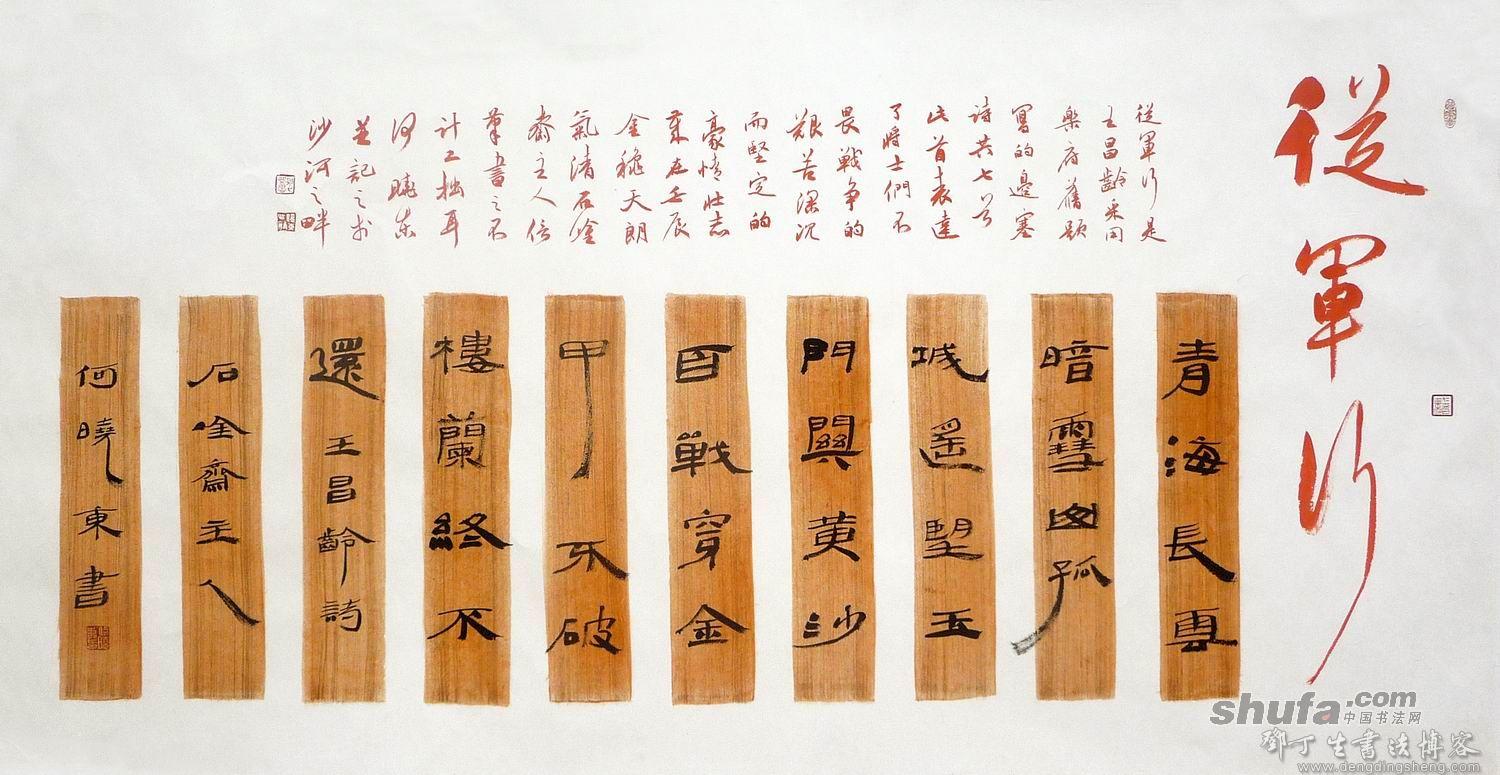 從軍行
從軍行是
王昌齡采用
樂府舊題
寫的邊塞
詩共七首
此首表達
了將士們不
畏戰爭的
艱苦深沉
而堅定的
豪情壯志
歲在壬辰
金穐天朗
氣清石唫
齋主人信
筆書之不
計工拙耳
何曉東
並記之於
沙河之畔
青海長雲
暗雪山孤
城遙望玉
門關黃沙
百戰穿金
甲不破
樓蘭終不
還王昌齡詩
石唫齋主人
何曉東書
shufa.com
中国书法网
鄧丁生書法博客
www.dengdingsheng.com